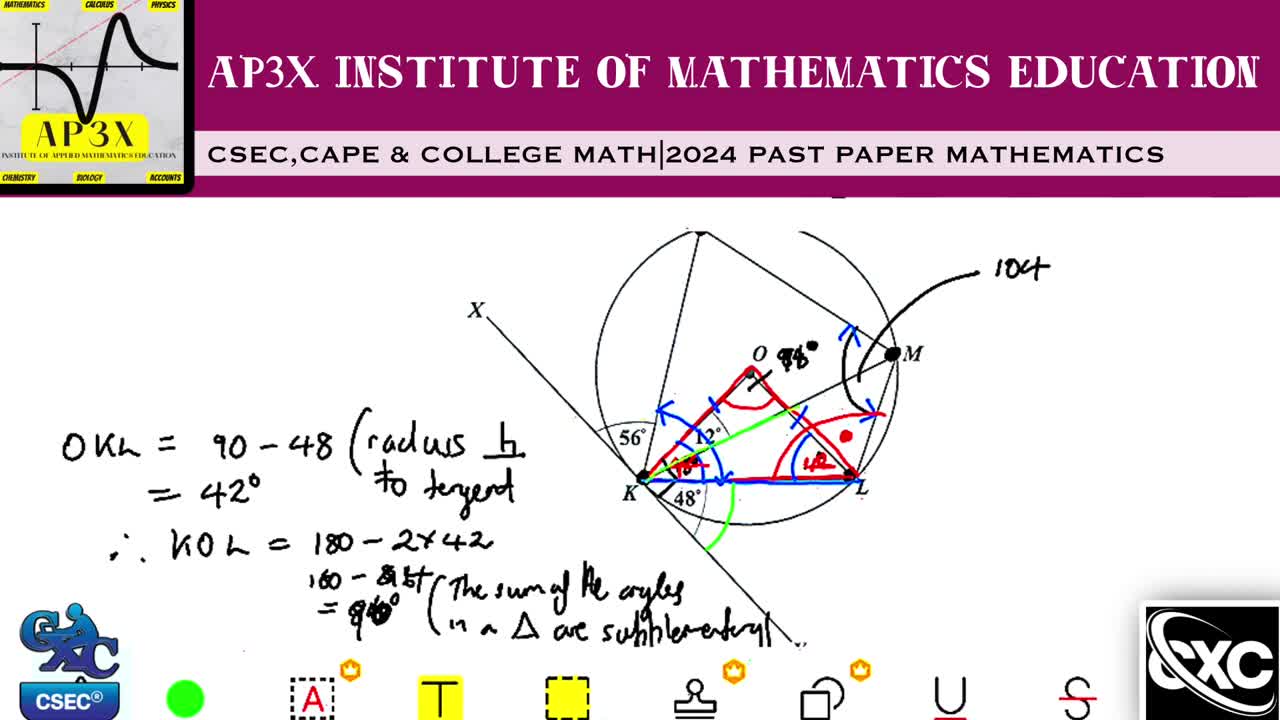 MATHEMATICS
CALCULUS
PHYSICS
AP3X
INSTITUTE OF APPLIED MATHEMATICS EDUCATION
CHEMISTRY
BIOLOGY
ACCOUNTS
AP3X INSTITUTE OF MATHEMATICS EDUCATION
CSEC,CAPE & COLLEGE MATH|2024 PAST PAPER MATHEMATICS
104
X
O
M
56°
12°
42
K
48°
L
OKL = 90 - 48 (radius ⊥
to tangent
= 42°
∴ KOL = 180 - 2x42
180 -
=
(The sum of the angles
in a Δ are supplementary)
CXC
CSEC®
A
T
U
S
CXC